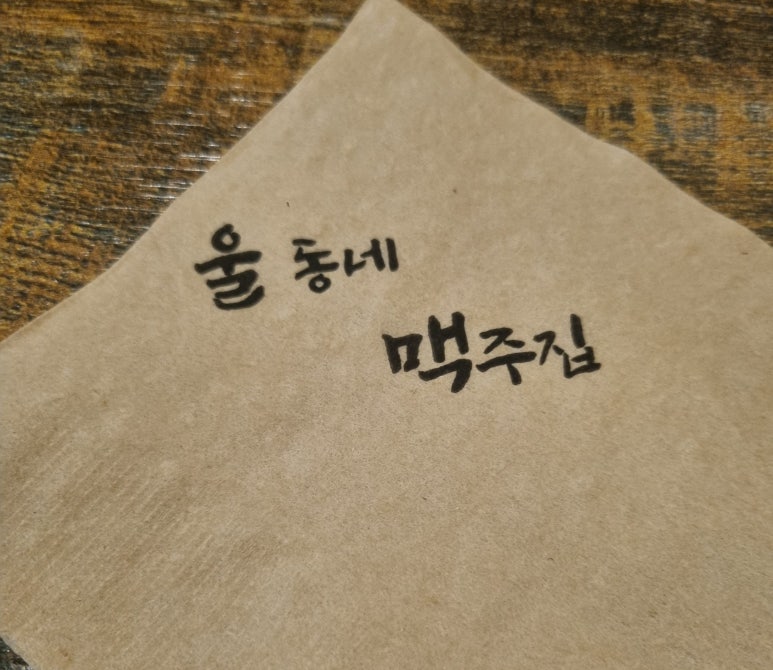 울 동네
맥주집